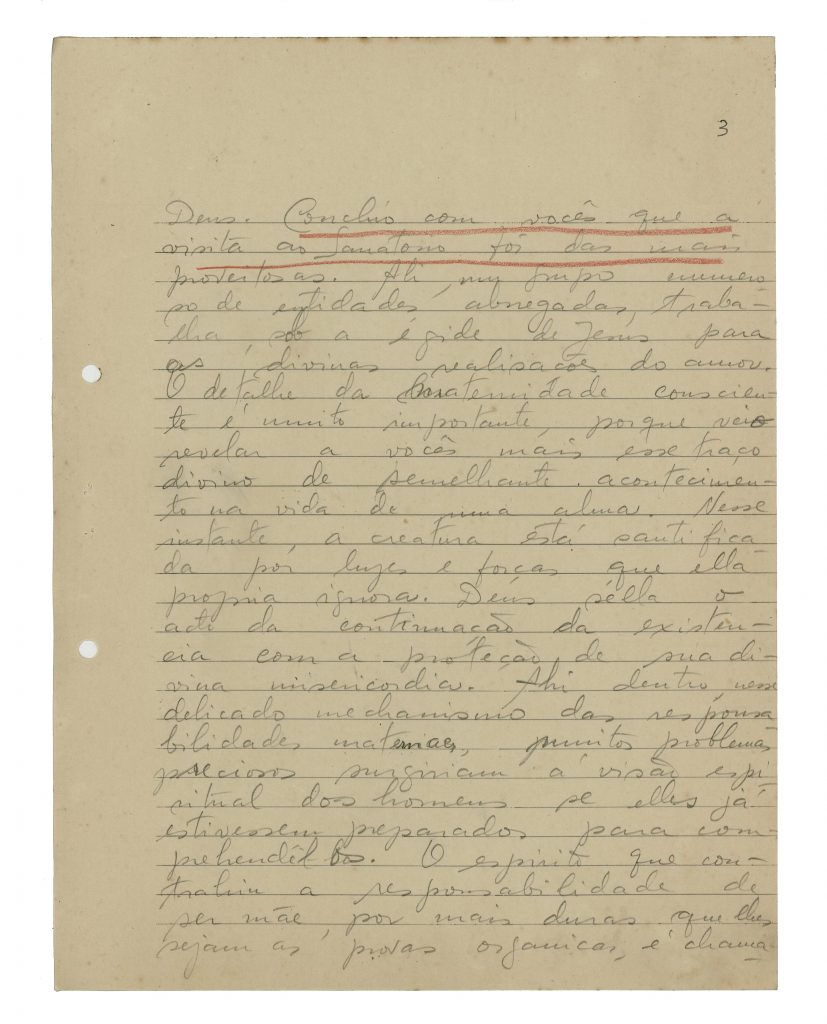 3
Deus. Concluo com vocês que a
visita ao Sanatorio foi das mais
proveitosas. Ahi, um grupo numero
so de entidades abnegadas, traba-
lha, sob a égide de Jesús para
as divinas realisações do amor.
O detalhe da maternidade conscien-
te é muito importante, porque veio
revelar a vocês mais esse traço
divino de semelhante acontecimen-
to na vida de uma alma. Nesse
instante, a creatura está santifica
da por luzes e forças que ella
propria ignora. Deus sella o
acto da continuação da existen-
cia com a proteção de sua di-
vina misericordia. Ahi dentro, nesse
delicado mechanismo das responsa
bilidades maternaes, muitos problemas
preciosos surgiriam á visão espi
ritual dos homens se elles já
estivessem preparados para com-
prehendêl-os. O espirito que con-
trahiu a responsabilidade de
ser mãe, por mais duras que lhes
sejam as provas organicas, é chama-